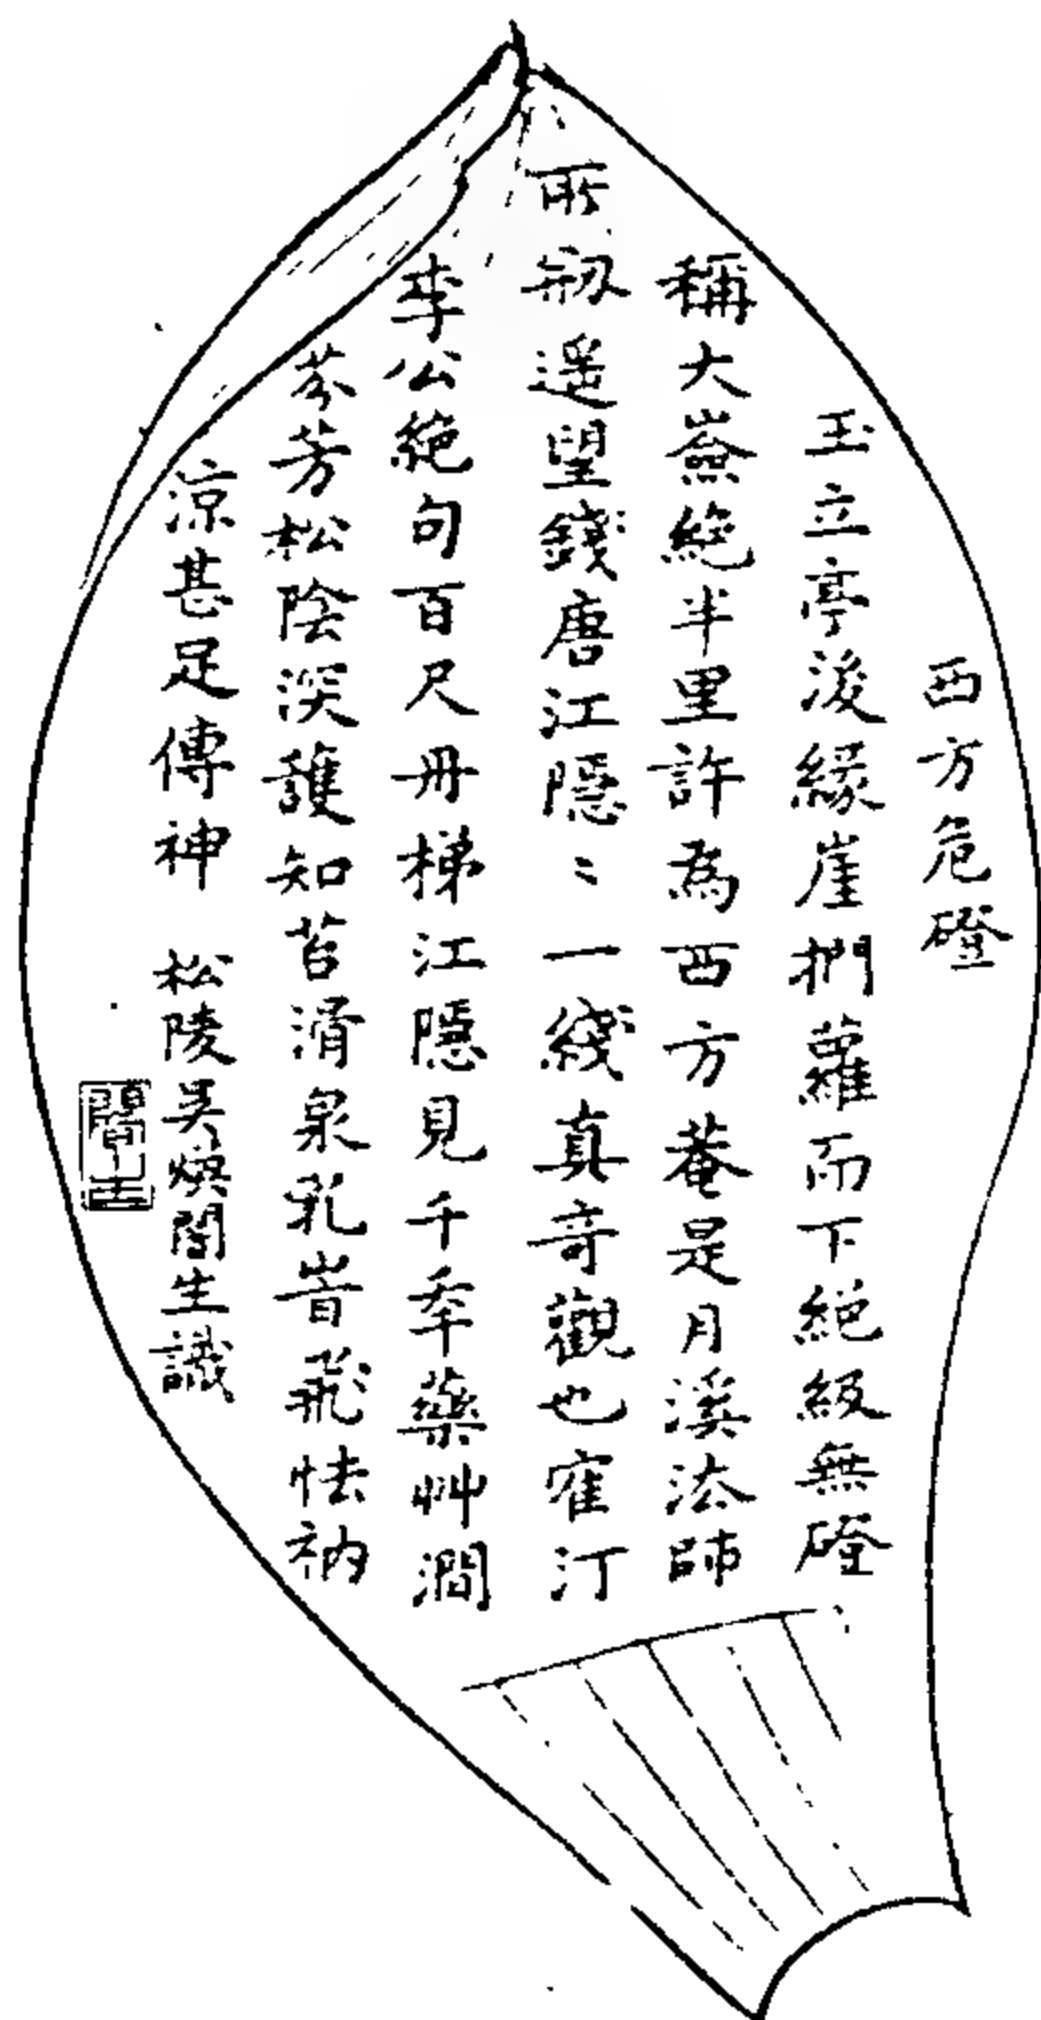 西方危磴
玉立亭後緣崖捫蘿而下絕級無磴
稱大嶮絕半里許為西方菴是月溪法師
所剏遥望錢唐江隱〻一綫真奇觀也寉汀
李公絕句百尺丹梯江隱見千秊藥艸澗
芬芳松陰深護知苔滑泉乳峕飛怯衲
涼甚足傳神　松陵吳煥閶生識